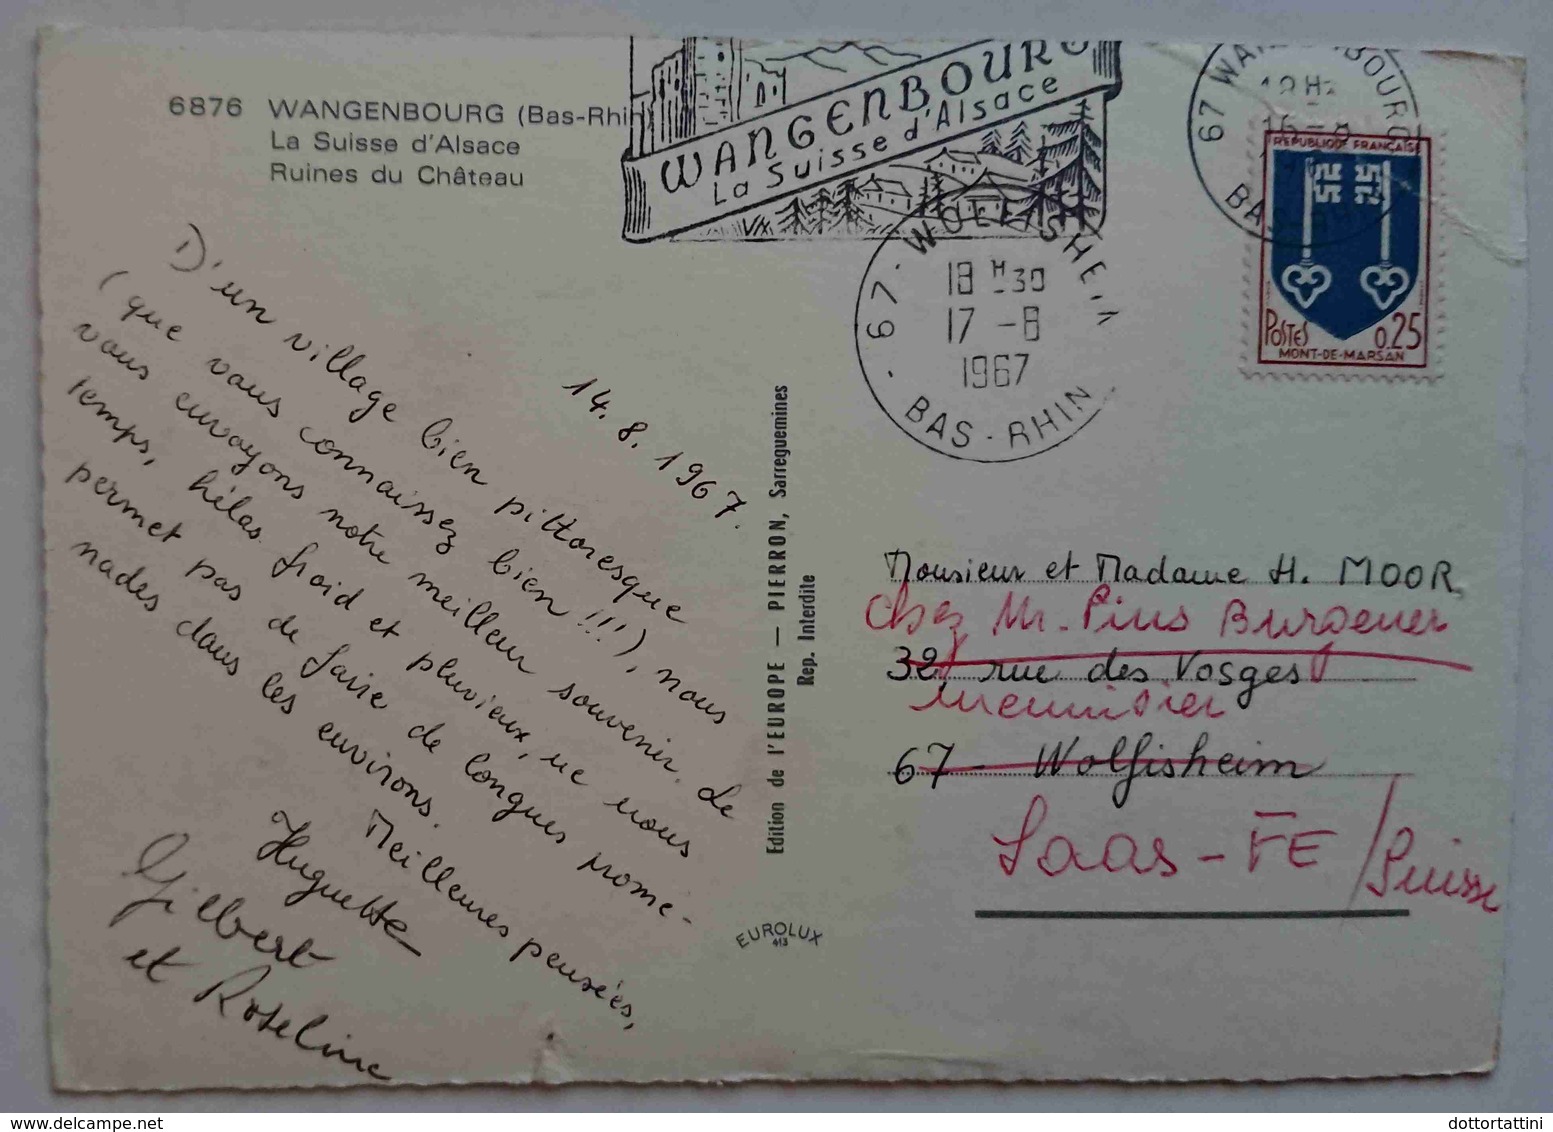 6876 WANGENBOURG (Bas-Rhin)
La Suisse d'Alsace
Ruines du Château
WANGENBOURG
La Suisse d'Alsace
67 WANGENBOURG
BAS-RHIN
67 - WOLFISHEIM
18 H 30
17 - 8
1967
BAS - RHIN
REPUBLIQUE FRANÇAISE
POSTES 0,25
MONT-DE-MARSAN
14. 8. 1967.
D'un village bien pittoresque
(que vous connaissez bien !!!), nous
vous envoyons notre meilleur souvenir. Le
temps, hélas froid et pluvieux, ne nous
permet pas de faire de longues prome-
nades dans les environs.
Meilleures pensées,
Huguette
Gilbert
et Roseline
Edition de l'EUROPE — PIERRON, Sarreguemines
Rep. Interdite
EUROLUX
413
Monsieur et Madame H. MOOR
chez Mr. Pius Burgener
32, rue des Vosges
menuisier
67 - Wolfisheim
Saas - FE / Suisse
www.delcampe.net
dottortattini